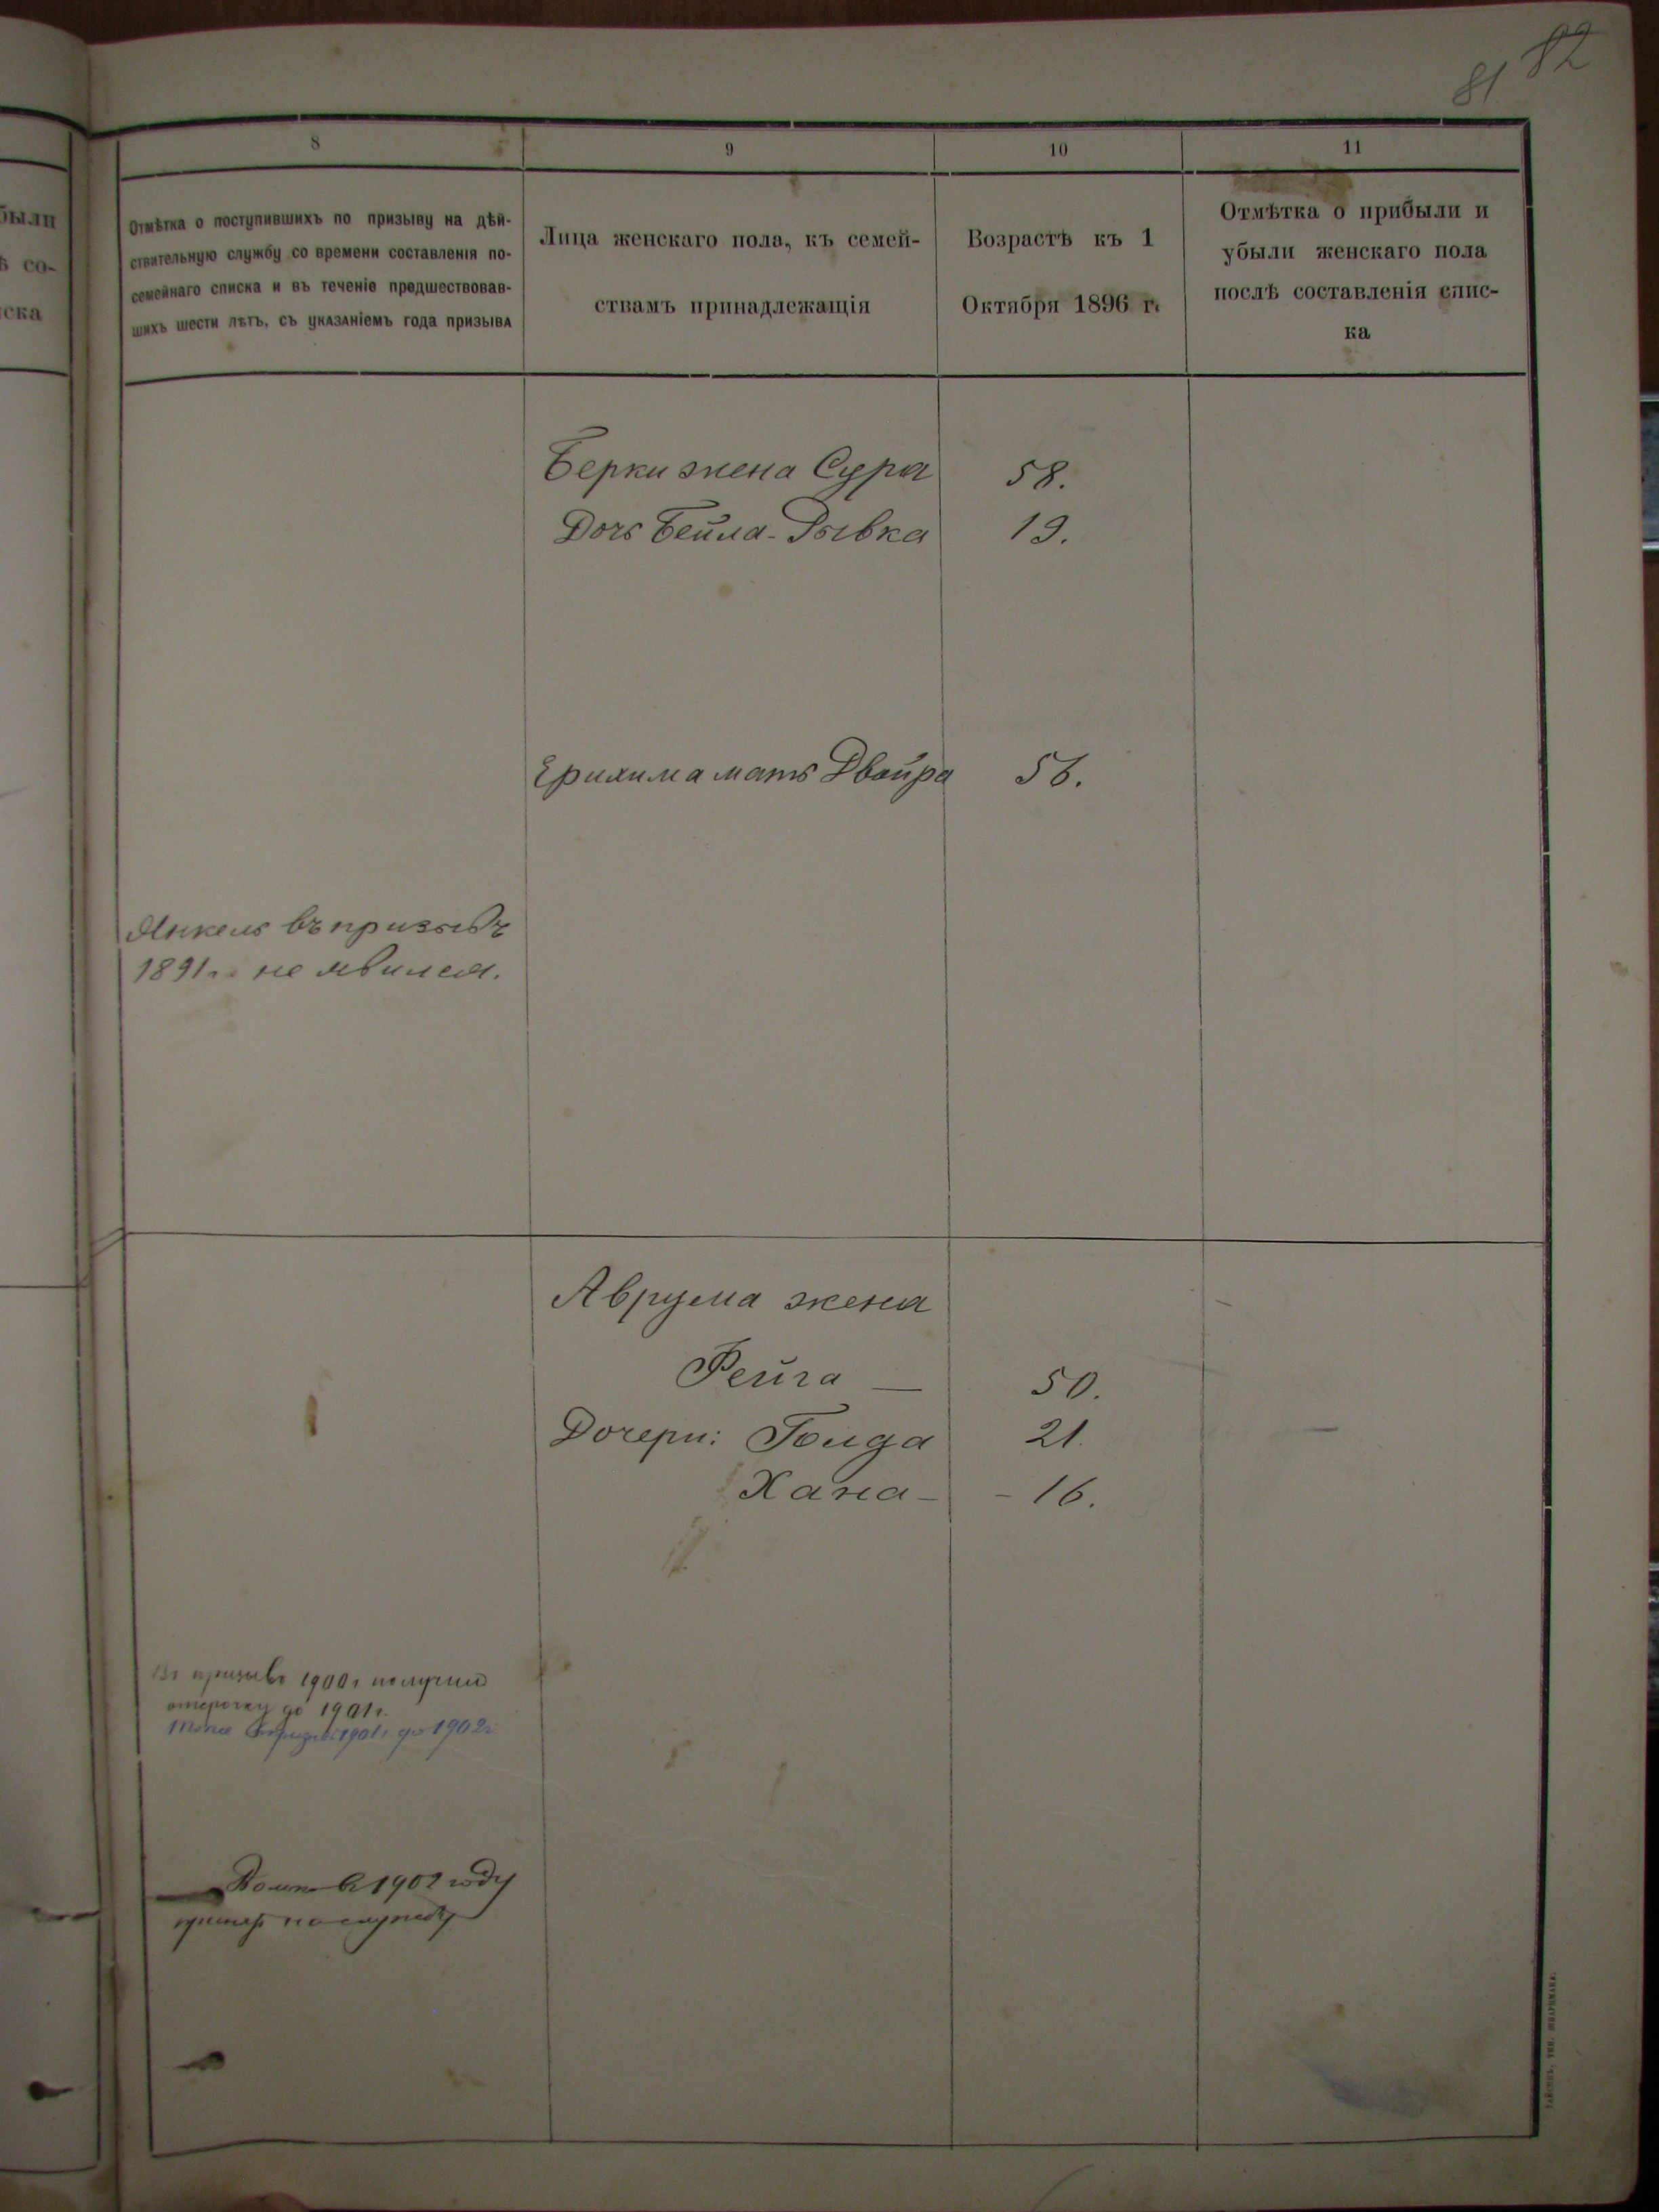 81 82
были
ѣ со-
ска
8
9
10
11
Отмѣтка о поступившихъ по призыву на дѣй-
ствительную службу со времени составленія по-
семейнаго списка и въ теченіе предшествовав-
шихъ шести лѣтъ, съ указаніемъ года призыва
Лица женскаго пола, къ семей-
ствамъ принадлежащія
Возрастъ къ 1
Октября 1896 г.
Отмѣтка о прибыли и
убыли женскаго пола
послѣ составленія спис-
ка
Берки жена Сура 58.
Дочь Бейла-Рывка 19.
мать Двойра 56.
Янкель въ призывѣ
1891 г. не явился.
Аврума жена
Фейга — 50.
Дочери: Голда 21.
Хана - - 16.
Въ призывѣ 1900 г получилъ
отсрочку до 1901 г.
1901 г. до 1902 г.
въ 1902 году